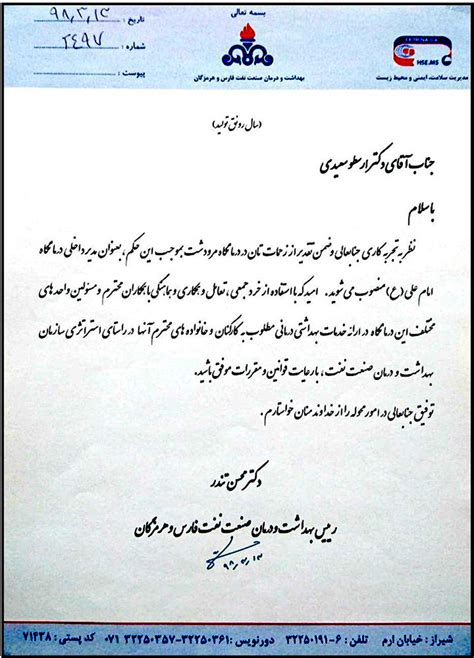 بسمه تعالی
تاریخ : ۹۸,۳,۱۳
شماره : ۲۴۹۷
پیوست :
HSE.MS
مدیریت سلامت، ایمنی و محیط زیست
بهداشت و درمان صنعت نفت فارس و هرمزگان
(سال رونق تولید)
جناب آقای دکتر ارسطو سعیدی
با سلام
نظر به تجربه کاری جنابعالی و ضمن تقدیر از زحمات تان در درمانگاه مرودشت بموجب این حکم، بعنوان مدیر داخلی درمانگاه
امام علی (ع) منصوب می شوید. امید که با استفاده از خرد جمعی، تعامل و همکاری و هماهنگی با همکاران محترم و مسئولین واحد های
مختلف این درمانگاه در ارائه خدمات بهداشتی درمانی مطلوب به کارکنان و خانواده های محترم آنها در راستای استراتژی سازمان
بهداشت و درمان صنعت نفت، با رعایت قوانین و مقررات موفق باشید.
توفیق جنابعالی در امور محوله را از خداوند منان خواستارم.
دکتر محسن تندر
رییس بهداشت و درمان صنعت نفت فارس و هرمزگان
۹۸,۳,۱۳
شیراز: خیابان ارم تلفن : ۶-۳۲۲۵۰۱۹۱ دورنویس : ۳۲۲۵۰۳۶۱-۳۲۲۵۰۳۵۷ ۰۷۱ کد پستی : ۷۱۴۳۸